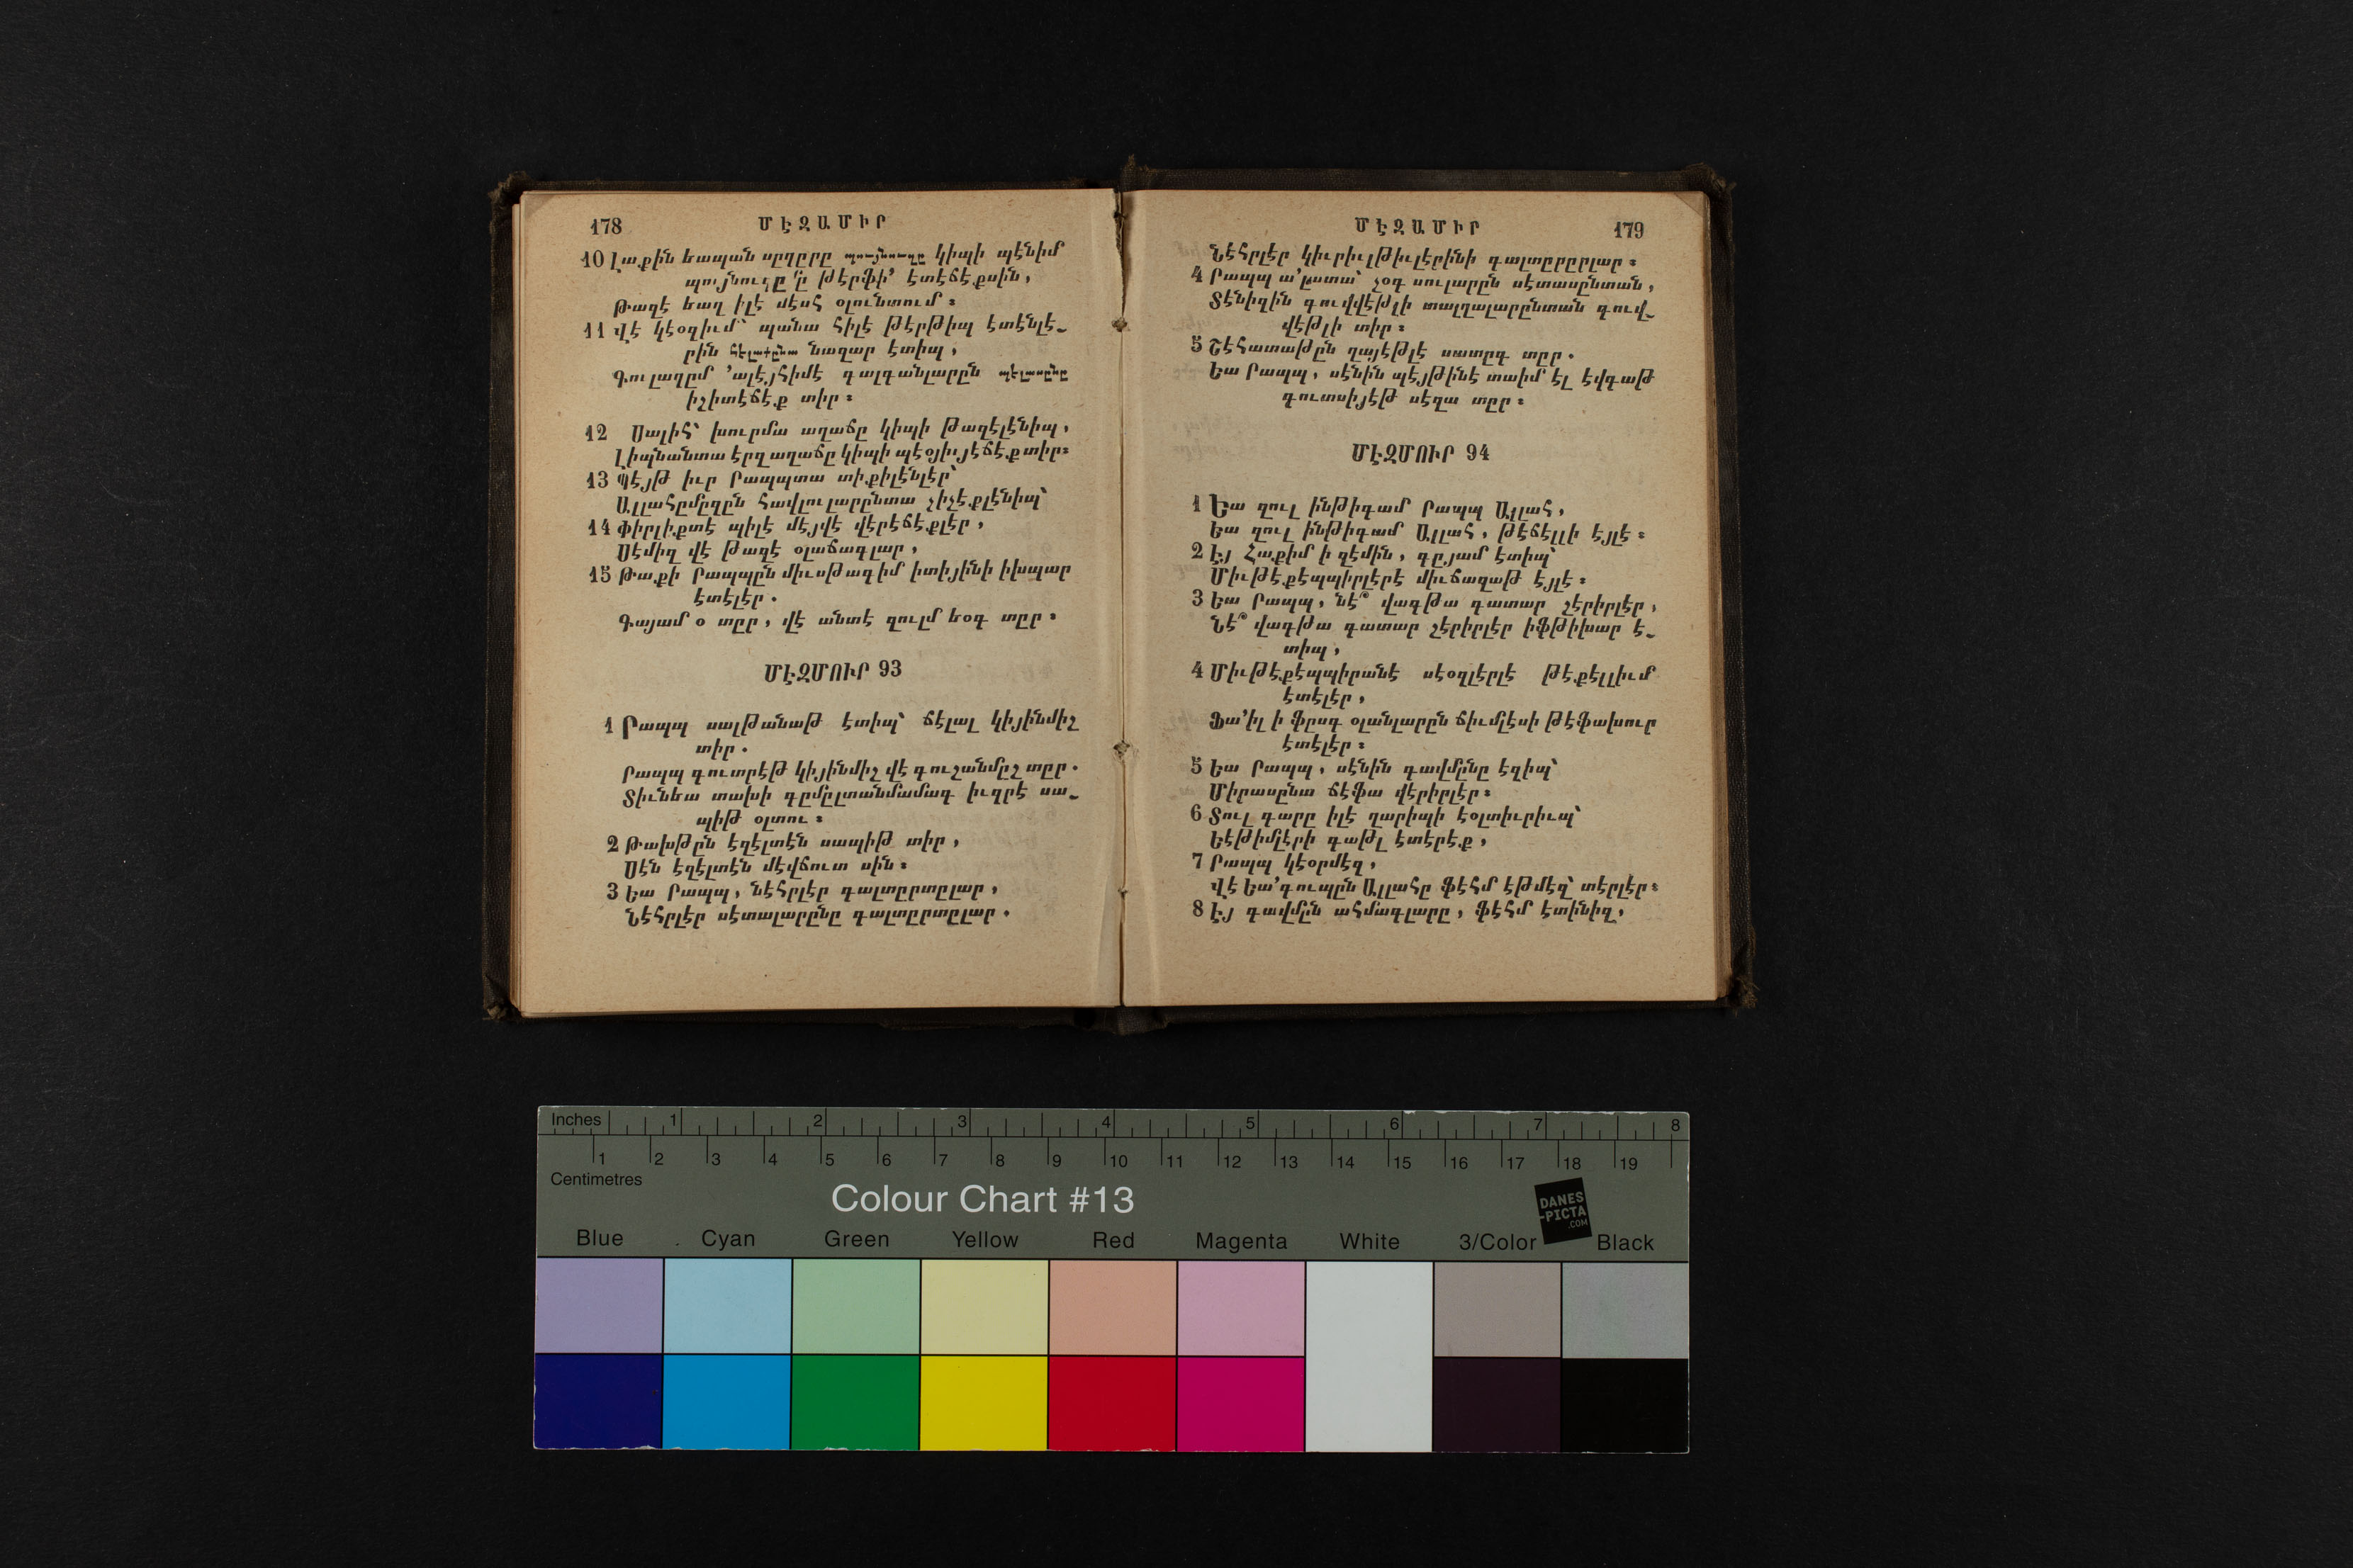 178
ՄԷԶԱՄԻՐ
10 Լաքին եապան սըղըրը պօյնուզը կիպի պէնիմ
պօյնուզըմը թէրֆիʼ էտէճէքսին,
Թազէ եաղ իլէ մէսհ օլունտում։
11 Վէ կէօզիւմ՝ պանա հիլէ թէրթիպ էտէնլէ֊
րին հէլաքընա նազար էտիպ,
Գուլաղըմ ʼալէյհիմէ գալգանլարըն պէլասընը
իշիտէճէք տիր։
12 Սալիհ՝ խուրմա աղաճը կիպի թազէլէնիպ,
Լիպնանտա էրզ աղաճը կիպի պէօյիւյէճէք տիր։
13 Պէյթ իւր Րապպտա տիքիլէնլէր՝
Ալլահըմըզըն հավլուլարընտա չիչէքլէնիպ՝
14 Փիրլիքտէ պիլէ մէյվէ վէրէճէքլէր,
Սէմիզ վէ թազէ օլաճագլար,
15 Թաքի Րապպըն միւսթագիմ իտիյինի իխպար
էտէլէր.
Գայամ օ տըր, վէ անտէ զուլմ եօգ տըր։
ՄԷԶՄՈՒՐ 93
1 Րապպ սալթանաթ էտիպ՝ ճէլալ կիյինմիշ
տիր.
Րապպ գուտրէթ կիյինմիշ վէ գուշանմըշ տըր.
Տիւնեա տախի գըմըլտանմամագ իւզրէ սա֊
պիթ օլտու։
2 Թախթըն էզէլտէն սապիթ տիր,
Սէն էզէլտէն մէվճուտ սին։
3 Եա Րապպ, նէհրլէր գալտըրտըլար,
Նէհրլէր սէտալարընը գալտըրտըլար.
ՄԷԶԱՄԻՐ
179
Նէհրլէր կիւրիւլթիւլէրինի գալտըրըրլար։
4 Րապպ աʼլատա՝ չօգ սուլարըն սէտասընտան,
Տէնիզին գուվվէթլի տալղալարընտան գուվ֊
վէթլի տիր։
5 Շէհատաթըն ղայէթլէ սատըգ տըր.
Եա Րապպ, սէնին պէյթինէ տաիմ էլ էվգաթ
գուտսիյէթ սէզա տըր։
ՄԷԶՄՈՒՐ 94
1 Եա զուլ ինթիգամ Րապպ Ալլահ,
Եա զուլ ինթիգամ Ալլահ, թէճէլլի էյլէ։
2 Էյ Հաքիմ ի զէմին, գըյամ էտիպ՝
Միւթէքէպպիրլէրէ միւճազաթ էյլէ։
3 Եա Րապպ, նէ՞ վագթա գատար շէրիրլէր,
Նէ՞ վագթա գատար շէրիրլէր իֆթիխար է֊
տիպ,
4 Միւթէքէպպիրանէ սէօզլէրլէ թէքէլլիւմ
էտէլէր,
Ֆաʼիլ ի ֆըսգ օլանլարըն ճիւմլէսի թէֆախուր
էտէլէր։
5 Եա Րապպ, սէնին գավմընը էզիպ՝
Միրասընտ ճէֆա վէրիրլէր։
6 Տուլ գարը իլէ ղարիպի էօլտիւրիւպ՝
Եէթիմլէրի գաթլ էտէրէք,
7 Րապպ կէօրմէզ,
Վէ Եաʼգուպըն Ալլահը ֆէհմ էթմէզ՝ տէրլէր։
8 Էյ գավմըն ահմագլարը, ֆէհմ էտինիզ,
Inches 1 2 3 4 5 6 7 8
1 2 3 4 5 6 7 8 9 10 11 12 13 14 15 16 17 18 19
Centimetres
Colour Chart #13
DANES
-PICTA
.COM
Blue Cyan Green Yellow Red Magenta White 3/Color Black